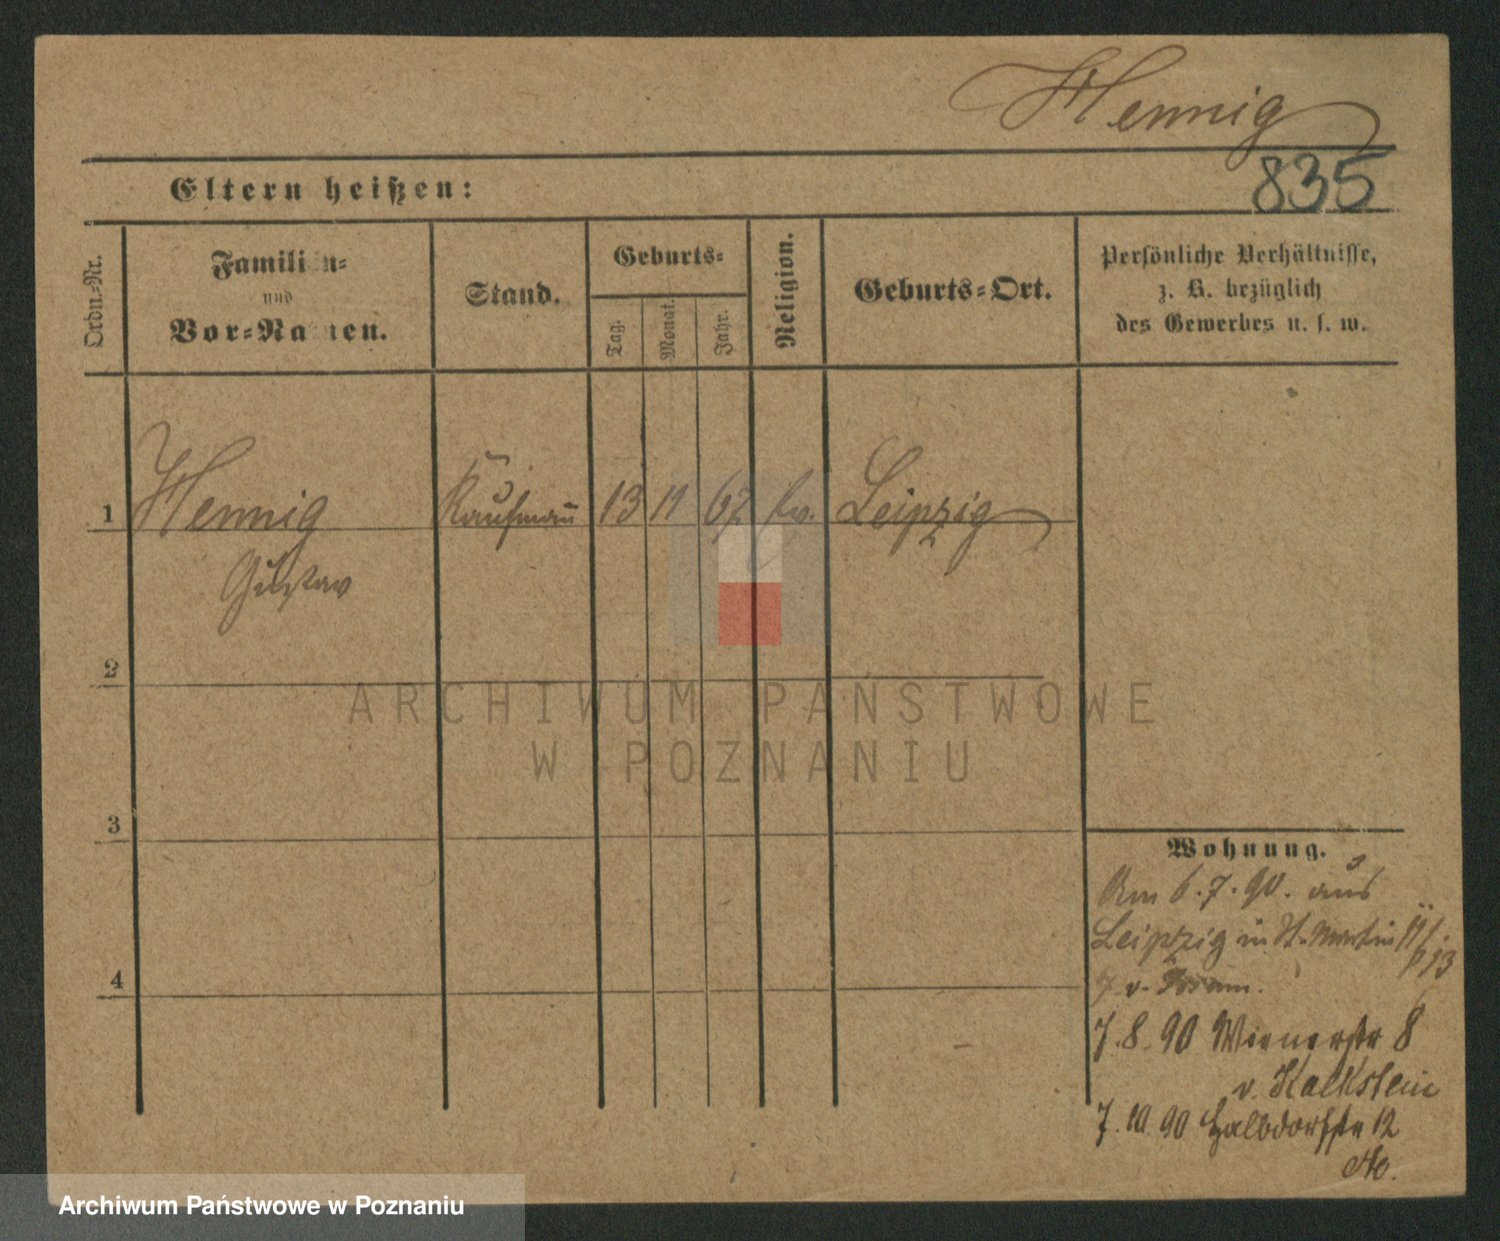 Hennig
835
Eltern heißen:
Ordn.-Nr.
Familien-
und
Vor-Namen.
Stand.
Geburts-
Tag.
Monat.
Jahr.
Religion.
Geburts-Ort.
Persönliche Verhältnisse,
z. B. bezüglich
des Gewerbes u. s. w.
1 Hennig Kaufmann 13 11 67 ev. Leipzig
Gustav
2
ARCHIWUM PAŃSTWOWE
W POZNANIU
3
Wohnung.
Am 6.7.90. aus
Leipzig in St. Martin
4
7.8.90 Wienerstr 8
v. Kalkstein
7.10.90 Halbdorfstr 12
Archiwum Państwowe w Poznaniu